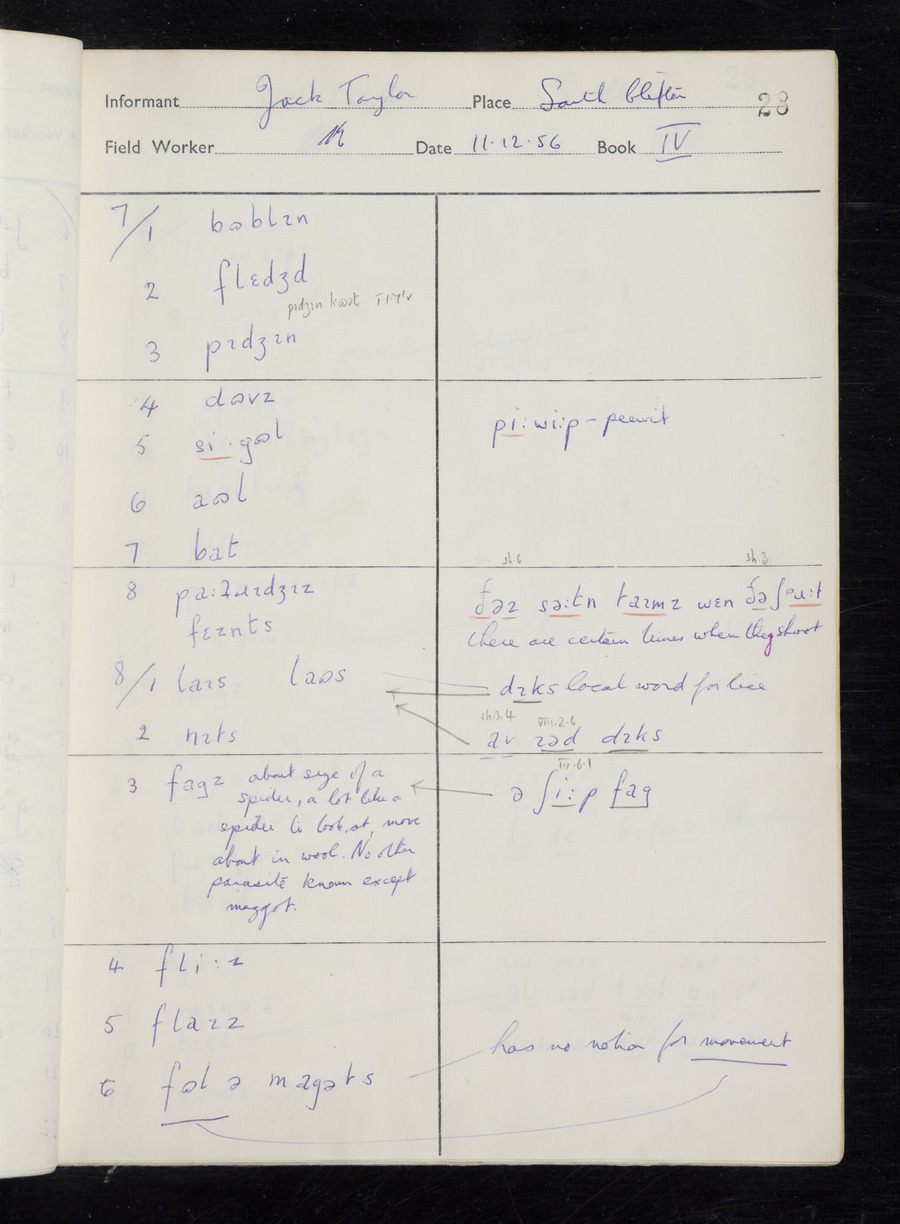 Informant Jack Taylor Place South Clifton 28
Field Worker Date 11.12.56 Book IV
7/1 bɷblɪn
2 flɛdʒd
pɪdʒɪn kɷət
3 pɪdʒɪn
4 dɷvz
5 si:gɷl
pi:wi:p - peewit
6 aɷl
7 bat
sh.6 sh.3
8 pa:tɹɪdʒɪz
fɛznts
ðəz sə:tn taɪmz wɛn ðə ʃᵊu:t
there are certain times when they shoot
8/1 laɪs laɷs
dɪks local word for lice
sh.3.4 VIII.2.6
2 nɪts
av ɪəd dɪks
III.6.1
3 fagz about size of a
spider, a lot like a
spider to look at, move
about in wool. No other
parasite known except
maggot.
ə ʃi:p fag
4 fli:z
5 flaɪz
has no notion for movement
6 fɷl ə magəts